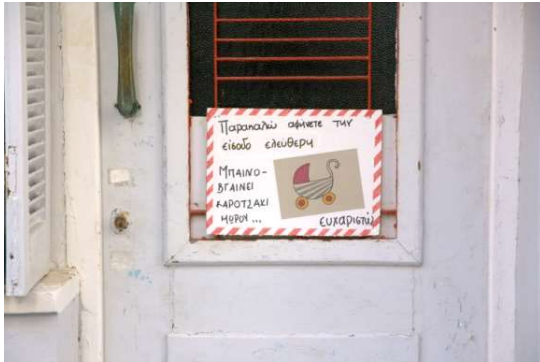 Παρακαλώ αφήνετε την
είσοδο ελεύθερη
ΜΠΑΙΝΟ-
ΒΓΑΙΝΕΙ
ΚΑΡΟΤΣΑΚΙ
ΜΩΡΟΥ...
ευχαριστώ